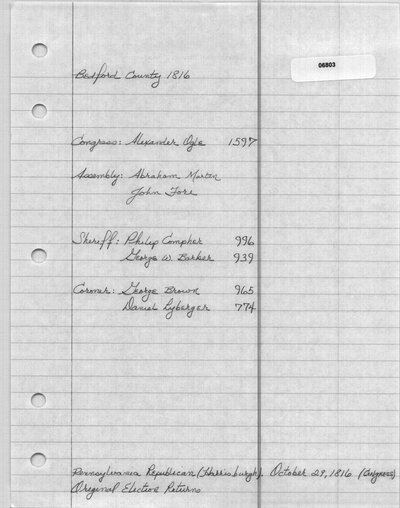 06803
Bedford County 1816
Congress: Alexander Ogle 1597
Assembly: Abraham Martin
John Fore
Sheriff: Philip Compher 996
George W. Barker 939
Coroner: George Brown 965
Daniel Lyberger 774
Pennsylvania Republican (Harrisburgh). October 29, 1816 (Congress)
Original Election Returns